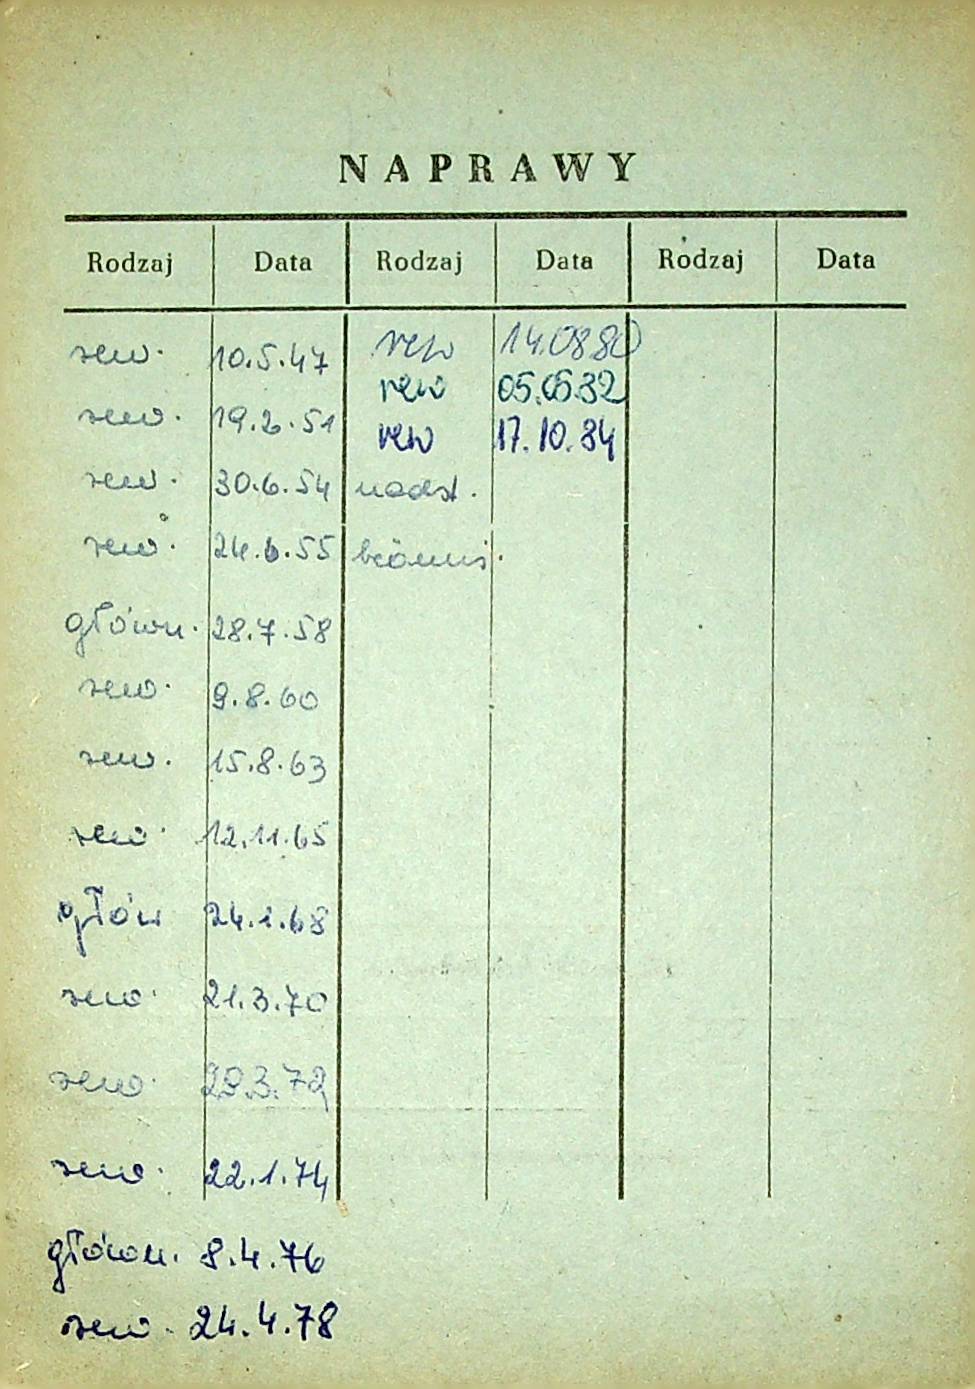 NAPRAWY
Rodzaj Data Rodzaj Data Rodzaj Data
rew. 10.5.47 rew 14.08.80
rew 05.05.82
rew. 19.2.51
rew 17.10.84
rew. 30.6.54 nadst.
rew. 24.6.55
główn. 28.7.58
rew. 9.8.60
rew. 15.8.63
rew. 12.11.65
głów 24.1.68
rew. 21.3.70
rew. 29.3.72
rew. 22.1.74
główn. 8.4.76
rew. 24.4.78